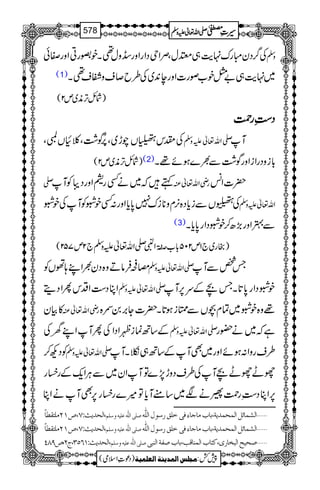 سیرتِ مصطفیٰ صلی اللہ تعالیٰ علیہ وسلم 578
کی گردن مبارک نہایت ہی معتدل، صراحی دار اور سڈول تھی۔ خوبصورتی اور صفائی
میں نہایت ہی بے مثل خوب صورت اور چاندی کی طرح صاف و شفاف تھی۔ (1)
(شمائل ترمذی ص۲)
دستِ رحمت
آپ صلی اللہ تعالیٰ علیہ وسلم کی مقدس ہتھیلیاں چوڑی، پرگوشت، کلائیاں لمبی،
بازو دراز اور گوشت سے بھرے ہوئے تھے۔ (2) (شمائل ترمذی ص۲)
حضرت انس رضی اللہ تعالیٰ عنہ کہتے ہیں کہ میں نے کسی ریشم اور دیبا کو آپ صلی
اللہ تعالیٰ علیہ وسلم کی ہتھیلیوں سے زیادہ نرم و نازک نہیں پایا اور نہ کسی خوشبو کو آپ کی خوشبو
سے بہتر اور بڑھ کر خوشبودار پایا۔ (3)
(بخاری ج۱ ص۵۰۲ باب صفۃ النبی صلی اللہ تعالیٰ علیہ وسلم ج۲ ص۲۵۷)
جس شخص سے آپ صلی اللہ تعالیٰ علیہ وسلم مصافحہ فرماتے وہ دن بھر اپنے ہاتھوں کو
خوشبودار پاتا۔ جس بچے کے سر پر آپ صلی اللہ تعالیٰ علیہ وسلم اپنا دست اقدس پھیر دیتے
تھے وہ خوشبو میں تمام بچوں سے ممتاز ہوتا۔ حضرت جابر بن سمرہ رضی اللہ تعالیٰ عنہ کا بیان
ہے کہ میں نے حضور کے ساتھ نماز ظہر ادا کی پھر آپ اپنے گھر کی
طرف روانہ ہوئے اور میں بھی آپ کے ساتھ ہی نکلا۔ آپ صلی اللہ تعالیٰ علیہ وسلم کو دیکھ کر
چھوٹے چھوٹے بچے آپ کی طرف دوڑ پڑے تو آپ ان میں سے ہر ایک کے رخسار
پر اپنا دست رحمت پھیرنے لگے میں سامنے آیا تو میرے رخسار پر بھی آپ نے اپنا
1 ……الشمائل المحمدية، باب ماجاء فی خلق رسول اللہ صلی اللہ علیہ وسلم، الحدیث: ۷، ص ۲۱ ملتقطاً
2 ……الشمائل المحمدية، باب ماجاء فی خلق رسول اللہ صلی اللہ علیہ وسلم، الحدیث: ۷، ص ۲۱ ملتقطاً
3 ……صحيح البخاری، کتاب المناقب، باب صفة النبی صلی اللہ علیہ وسلم، الحدیث: ۳۵۶۱، ج ۲، ص ۴۸۹
پیش کش: مجلس المدینة العلمیة (دعوتِ اسلامی)